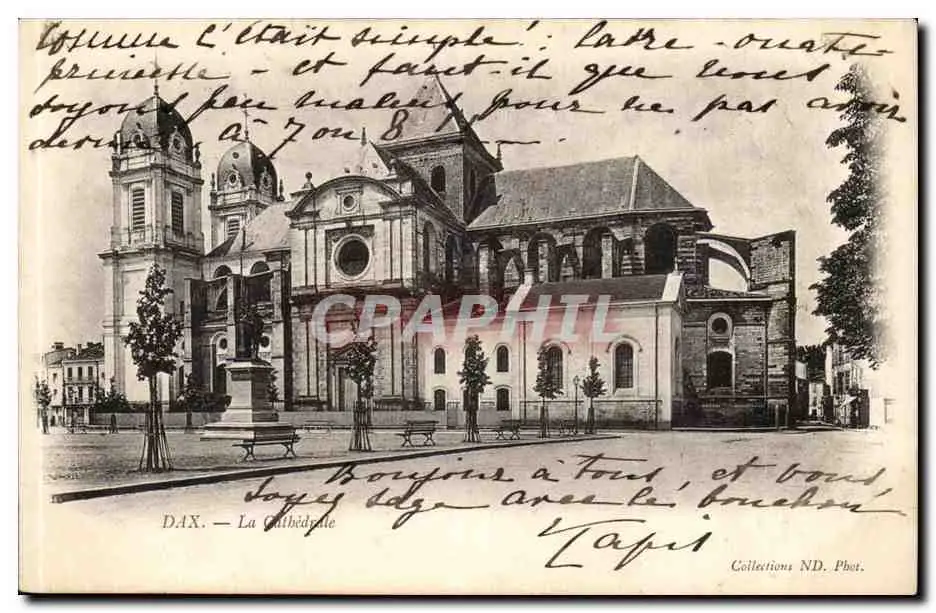 comme c'était simple ! latre onate
princesse - et faut-il que nous
soyons peu malins pour ne pas avoir
deviné à
CPARAPHIL
Bonjour à tous, et bous
Soyez sage avec le, bouchon !
Tapis
DAX. — La Cathédrale
Collections ND. Phot.